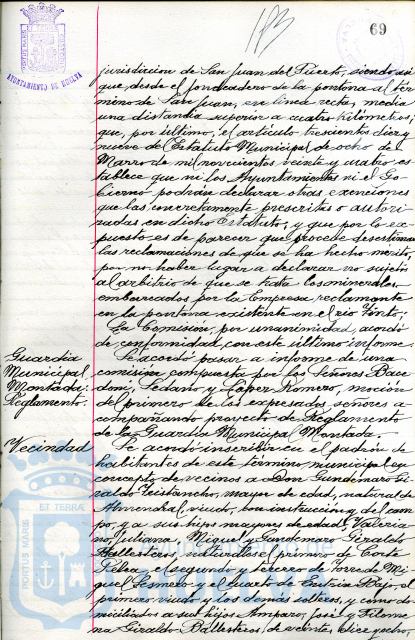 69
AYUNTAMIENTO DE HUELVA
jurisdiccion de San Juan del Puerto, siendo así
que, desde el fondeadero de la pontona al tér-
mino de San Juan, en linea recta, media
una distancia superior a cuatro kilómetros;
que, por último, el artículo trescientos diez y
nueve del Estatuto Municipal de ocho de
Marzo de mil novecientos veinte y cuatro es-
tablece que ni los Ayuntamientos ni el Go-
bierno podrán declarar otras exenciones
que las concretamente prescritas o autori-
zadas en dicho Estatuto, y que por lo ex-
puesto es de parecer que procede desestimar
las reclamaciones de que se ha hecho mérito,
por no haber lugar a declarar no sujeto
al arbitrio de que se trata los minerales
embarcados por la Empresa reclamante
en la pontona existente en el río Tinto;
La Comision, por unanimidad, acordó
de conformidad con este último informe.
Guardia
Municipal
Montada:
Reglamento.
Se acordó pasar a informe de una
comisión compuesta por los Señores
Sedano y López Romero, moción
del primero de los expresados señores a-
compañando proyecto de Reglamento
de la Guardia Municipal Montada.
Vecindad
Se acordó inscribir en el padrón de
habitantes de este término municipal en
concepto de vecinos a Don Gundemaro Gi-
raldo mayor de edad, natural de
Almendral, viudo, con instrucción y del cam-
po, y a sus hijos mayores de edad Valeria-
no, Juliana, Miguel y Gundemaro Giraldo
Ballesteros, naturales el primero de Corte
Pelea, el segundo y tercero de Torre de Mi-
guel Sesmero y el cuarto de Entrin Bajo, el
primero viudo y los demás solteros, y como do-
miciliados a sus hijos Amparo, José y Filome-
na Giraldo Ballesteros, de veinte, diez y ocho
PORTUS MARIS ET TERRAE